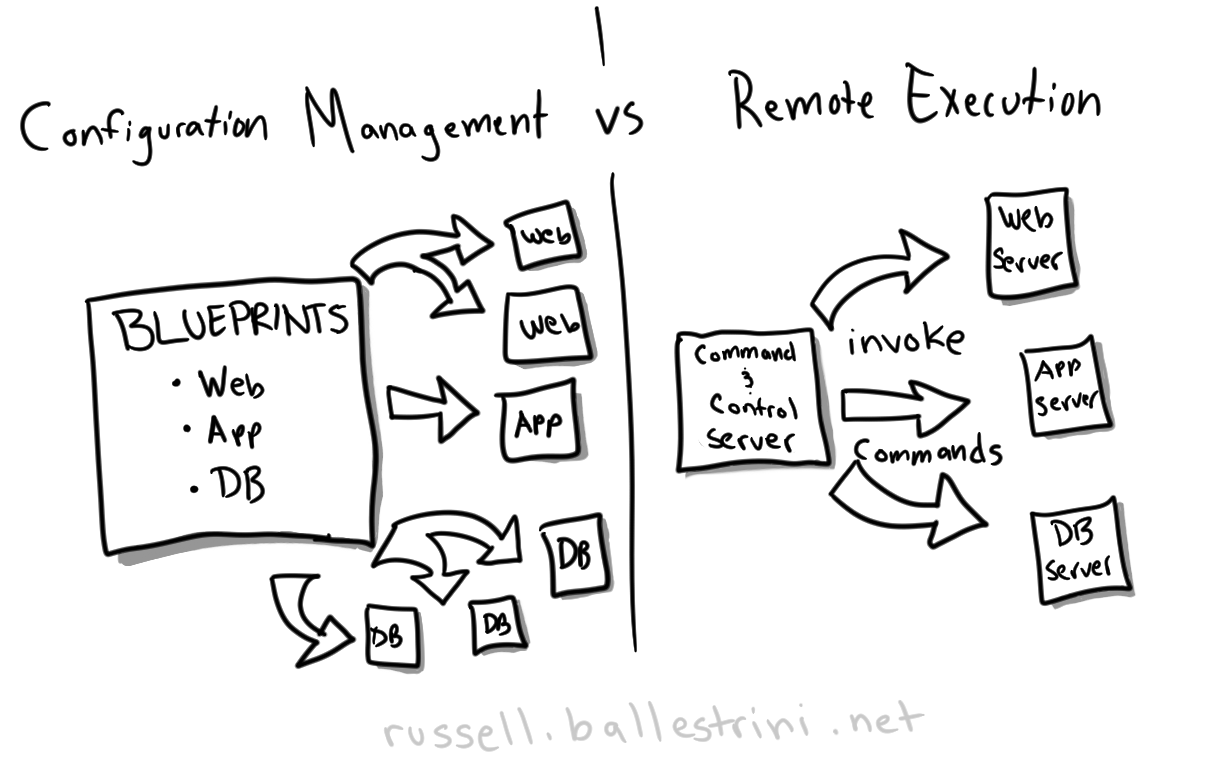 Configuration Management vs Remote Execution
BLUEPRINTS
• Web
• App
• DB
Web
Web
App
DB
DB
DB
Command
&
Control
Server
invoke
Commands
Web
Server
App
Server
DB
Server
russell.ballestrini.net